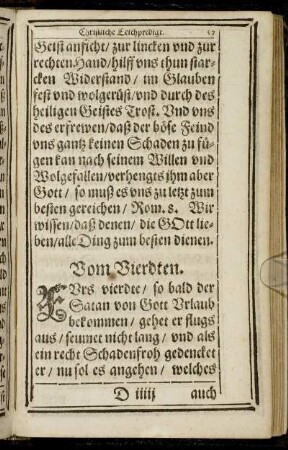 Christliche Leichpredigt. 57
Geist anficht/ zur lincken vnd zur
rechten Hand/ hilff vns thun star-
cken Widerstand/ im Glauben
fest vnd wolgerüst/ vnd durch des
heiligen Geistes Trost. Vnd vns
des erfrewen/ daß der böse Feind
vns gantz keinen Schaden zu fü-
gen kan nach seinem Willen vnd
Wolgefallen/ verhengts ihm aber
Gott/ so muß es vns zu letzt zum
besten gereichen/ Rom. 8. Wir
wissen/ daß denen/ die GOtt lie-
ben/ alle Ding zum besten dienen.
Vom Vierdten.
FUrs vierdte/ so bald der
Satan von Gott Vrlaub
bekommen/ gehet er flugs
aus/ seumet nicht lang/ vnd als
ein recht Schadenfroh gedencket
er/ nu sol es angehen/ welches
D iiiij auch